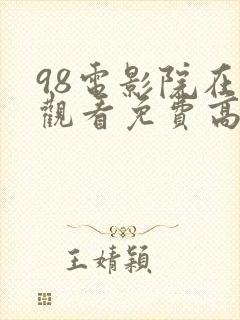 98電影院在
觀看免費高
王婧穎